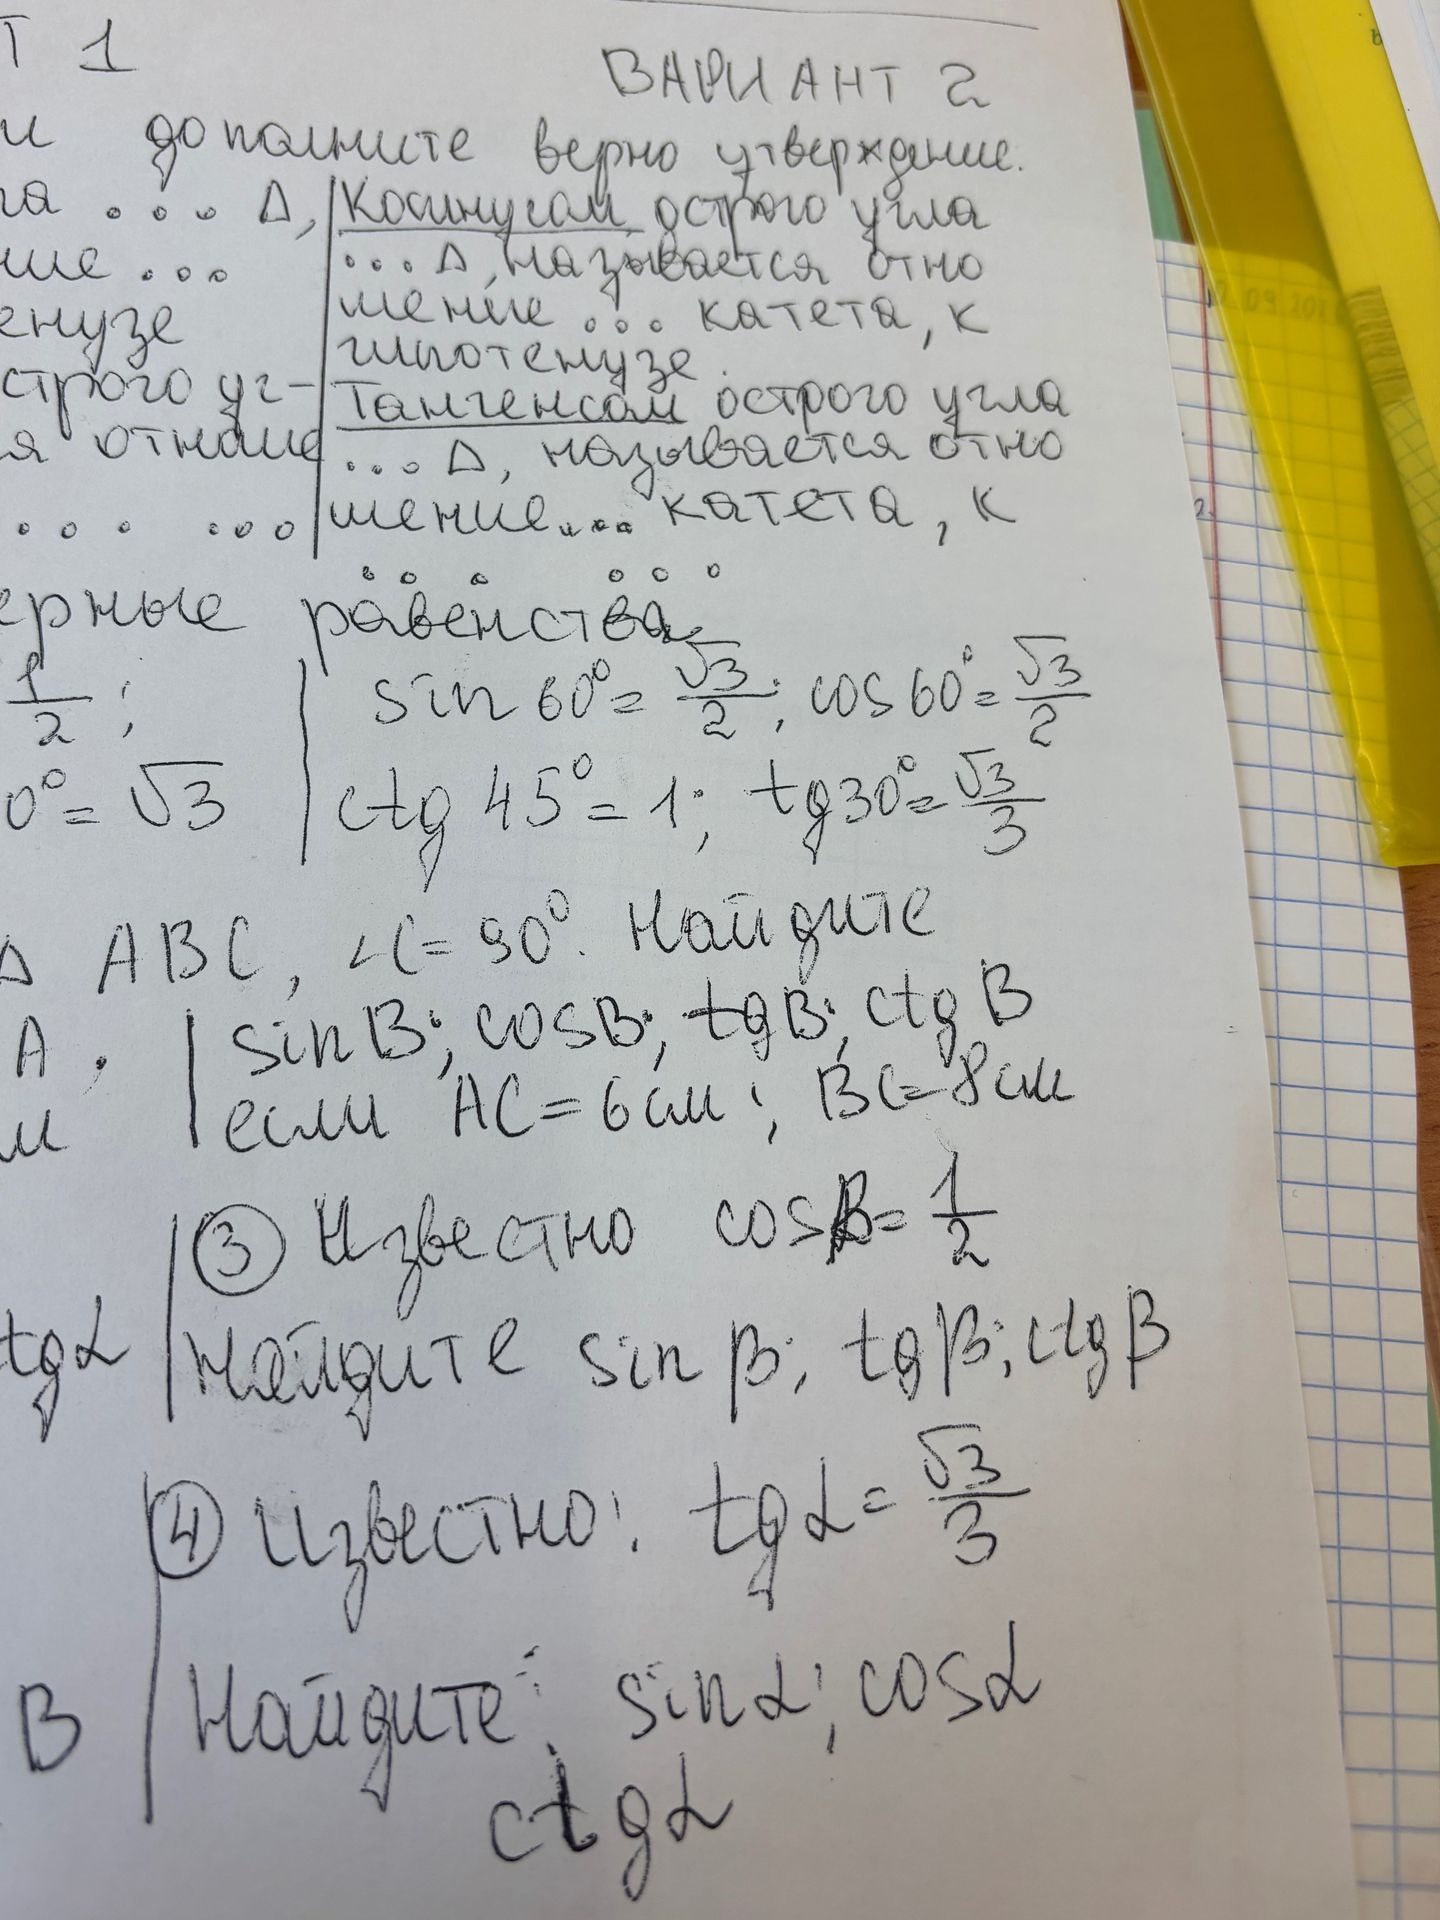 Т 1
ВАРИАНТ 2
и дополните верно утверждение.
га ... Δ,
ние ...
енузе
строго уг-
я отноше
... ...
Косинусом острого угла
... Δ, называется отно
шение ... катета, к
гипотенузе.
Тангенсом острого угла
... Δ, называется отно
шение... катета, к
... ...
ерные равенства
1/2 ;
0° = √3
sin 60° = √3/2 ; cos 60° = √3/2
ctg 45° = 1 ; tg 30° = √3/3
Δ ABC, ∠C = 90°. Найдите
A .
м
sin B; cos B; tg B; ctg B
если AC = 6 см ; BC = 8 см
③ Известно cos β = 1/2
tg α
Найдите sin β ; tg β ; ctg β
④ Известно: tg α = √3/3
B
Найдите: sin α ; cos α
ctg α